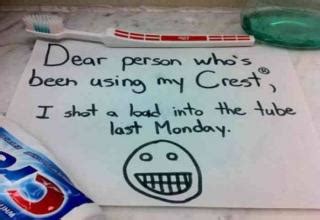 Dear person who's
been using my Crest®,
I shot a load into the tube
last Monday.
Cre
WHIT